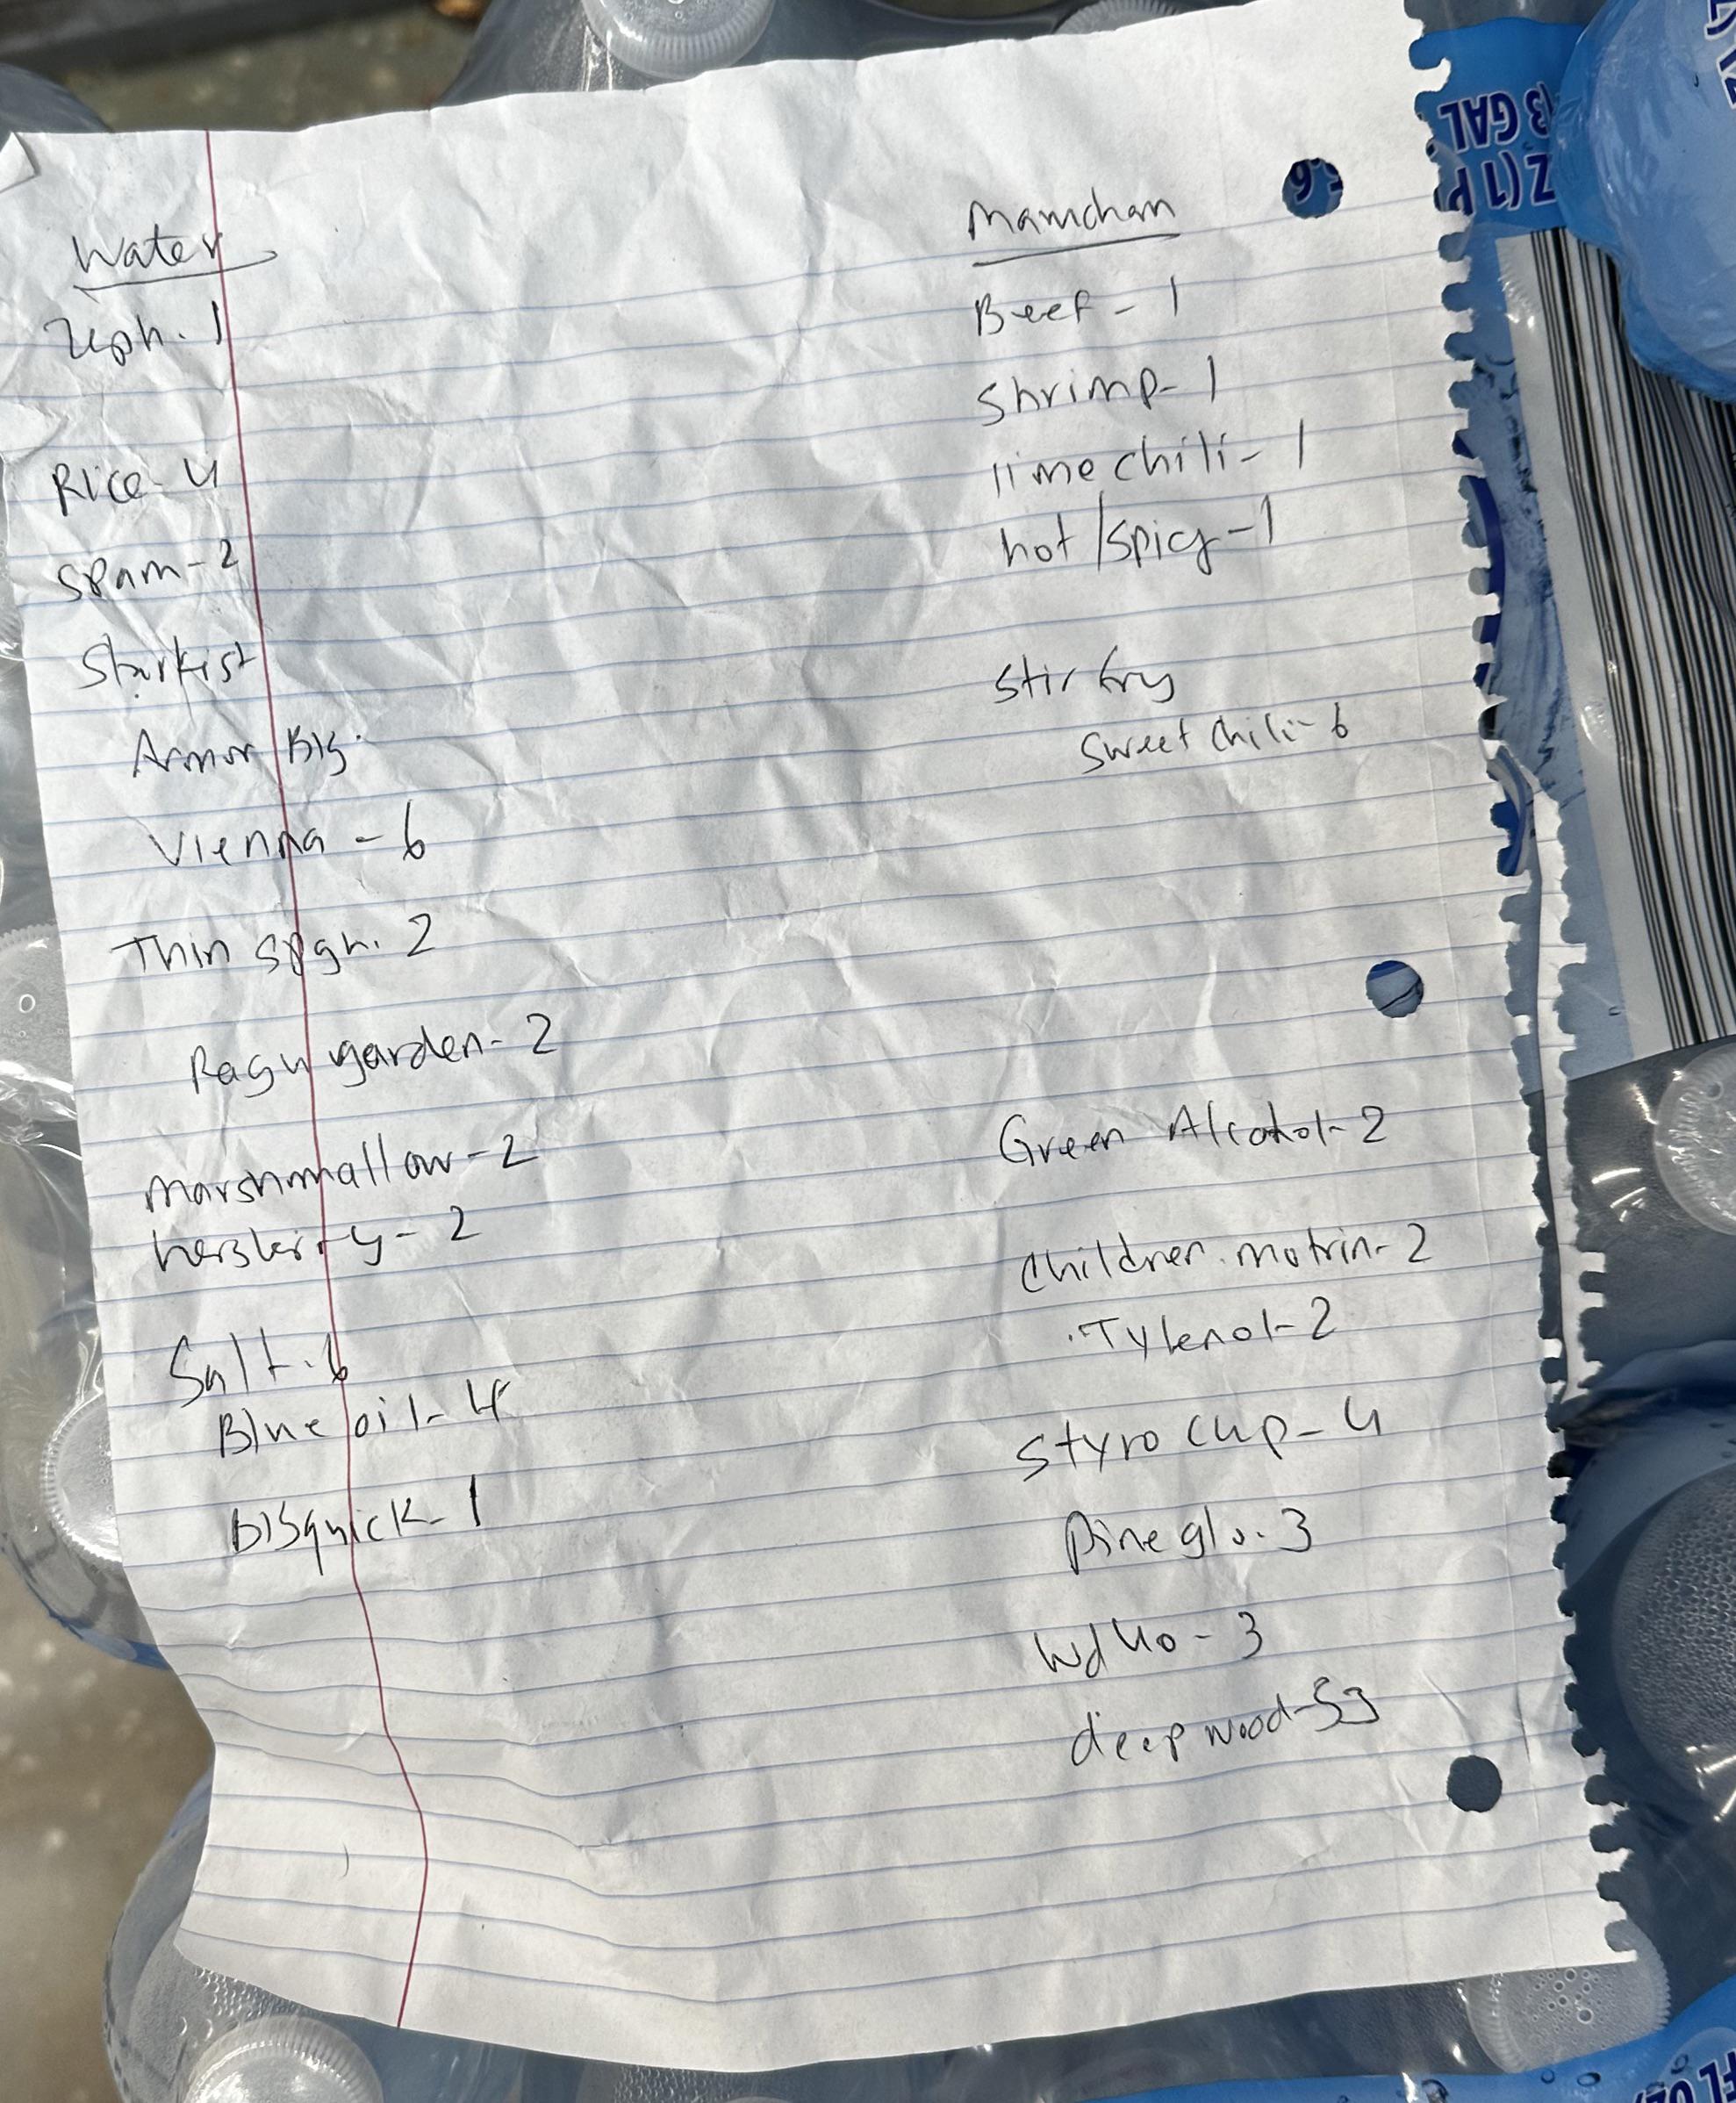 Water
Zeph. 1
Rice - 4
Spam - 2
Starkist
Armor Big.
Vienna - 6
Thin spgh. 2
Ragu garden - 2
Marshmallow - 2
Salt. 6
Blue oil - 4
Bisquick - 1
Maruchan
Beef - 1
Shrimp - 1
lime chili - 1
hot / spicy - 1
Stir fry
Sweet chili - 6
Green Alcohol - 2
Children. motrin - 2
. Tylenol - 2
Styro cup - 4
Pine glo. 3
Wd 40 - 3
deep wood -
3 GAL